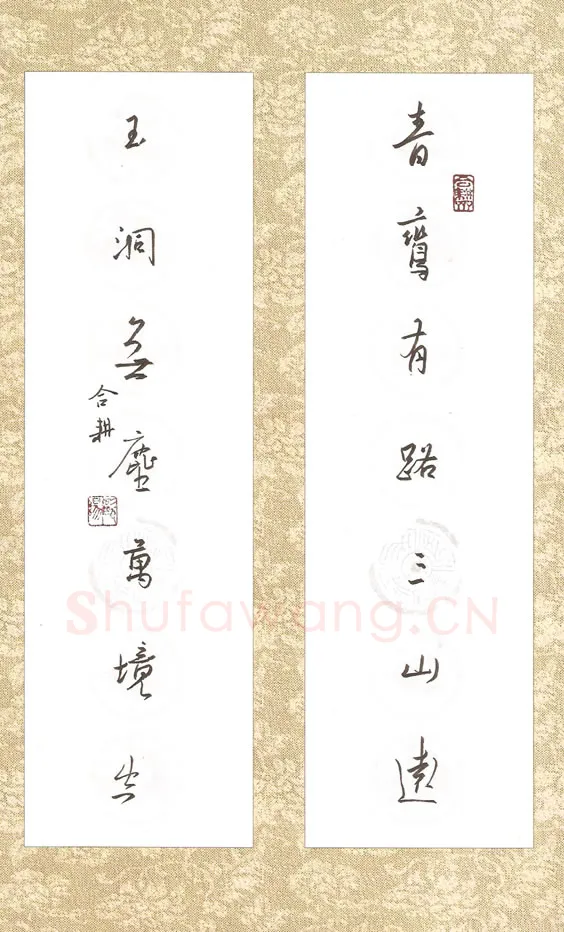 青鸞有路三山遠
玉洞無塵萬境
合耕
Shufawang.CN